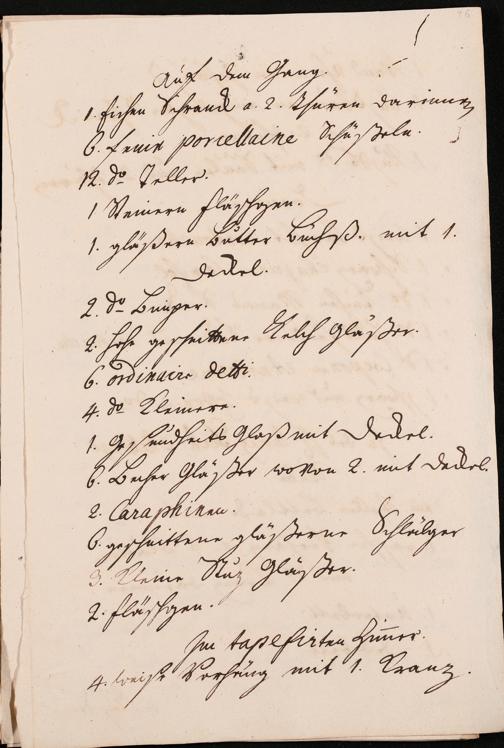 Auf dem Gang.
1. Eichen Schranck a. 2. Thüren darinnen
6. feine porcellaine Schüßeln.
12. do Teller.
1 Steinern fläschgen.
1. gläßern Butter Büchß. mit 1.
Deckel.
2. do
2. hohe geschnittene Kelch Gläßer.
6. ordinaire detti.
4. do Kleinere.
1. Gesundheits Glaß mit Deckel.
6. Becher Gläßer wovon 2. mit Deckel.
2. Caraphinen.
6. geschnittene gläßerne
3. Kleine Stuz Gläßer.
2. fläschgen.
Im tapesirten Zimer.
4. weiße Vorhäng mit 1. Kranz.